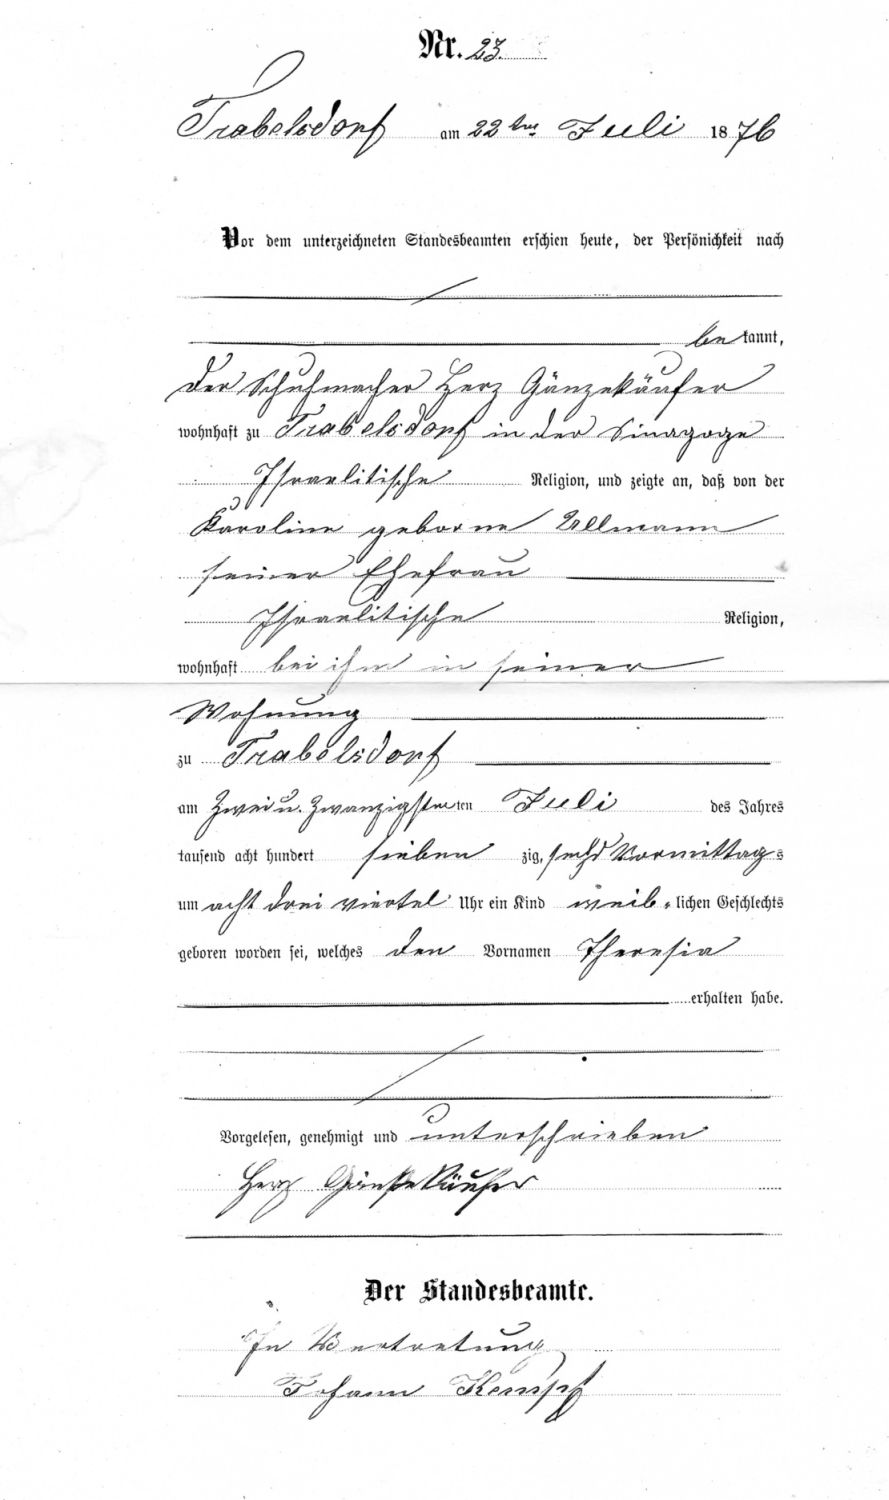 Nr. 23.
Trabelsdorf am 22ten Juli 1876
Vor dem unterzeichneten Standesbeamten erschien heute, der Persönichkeit nach
bekannt,
der Schuhmacher Herz Gänzekäufer
wohnhaft zu Trabelsdorf in der Sinagoge
Israelitische Religion, und zeigte an, daß von der
Karoline geborne Ullmann
seiner Ehefrau
Israelitische Religion,
wohnhaft bei ihm in seiner
Wohnung
zu Trabelsdorf
am Zwei u. Zwanzigsten ten Juli des Jahres
tausend acht hundert sieben zig, sechs Vormittags
um acht drei viertel Uhr ein Kind weib-lichen Geschlechts
geboren worden sei, welches den Vornamen Theresia
erhalten habe.
Vorgelesen, genehmigt und unterschrieben
Herz Gänsekäufer
Der Standesbeamte.
In Vertretung
Johann Kempf